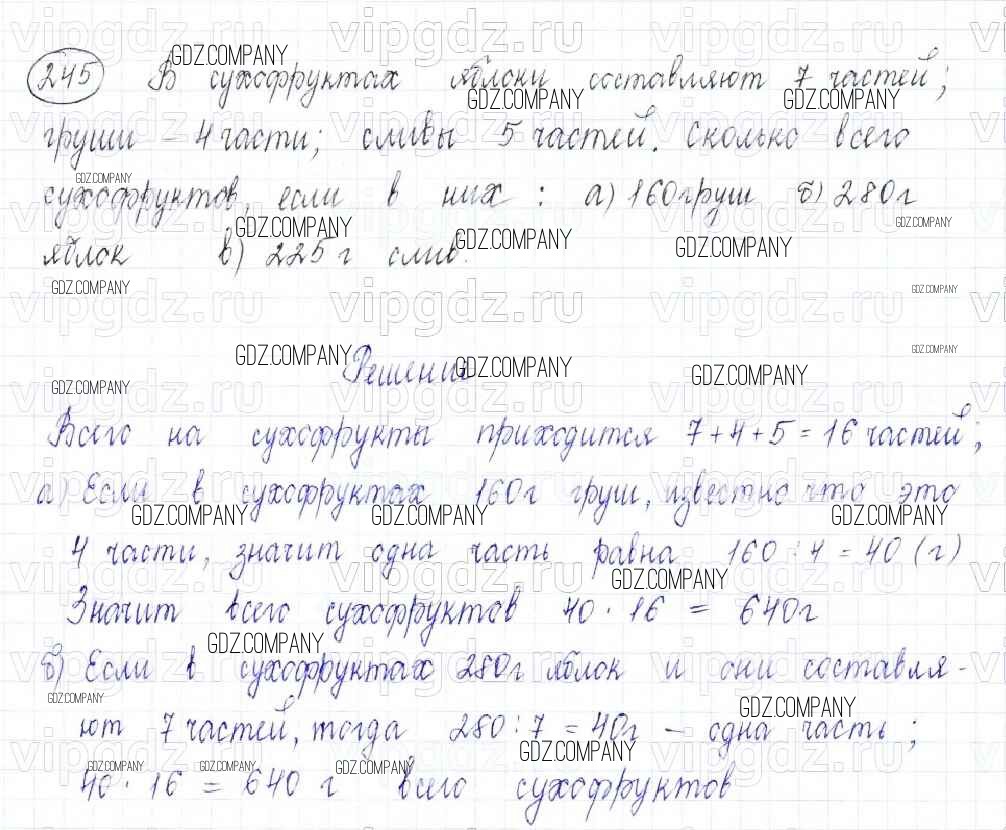 245 В сухофруктах яблоки составляют 7 частей;
груши - 4 части; сливы 5 частей. Сколько всего
сухофруктов, если в них: а) 160г груш б) 280г
яблок в) 225 г слив.
Решение
Всего на сухофрукты приходится 7+4+5=16 частей;
а) Если в сухофруктах 160г груш, известно что это
4 части, значит одна часть равна 160:4=40 (г)
Значит всего сухофруктов 40·16 = 640г
б) Если в сухофруктах 280г яблок и они составля-
ют 7 частей, тогда 280:7=40г - одна часть;
40·16 = 640 г всего сухофруктов
vipgdz.ru
GDZ.COMPANY